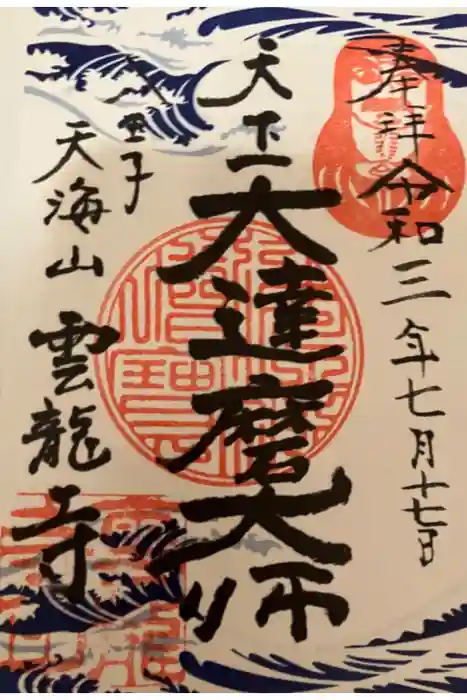 奉拝 令和三年七月十七日
天下一
大達磨大师
八王子
天海山 雲龍寺